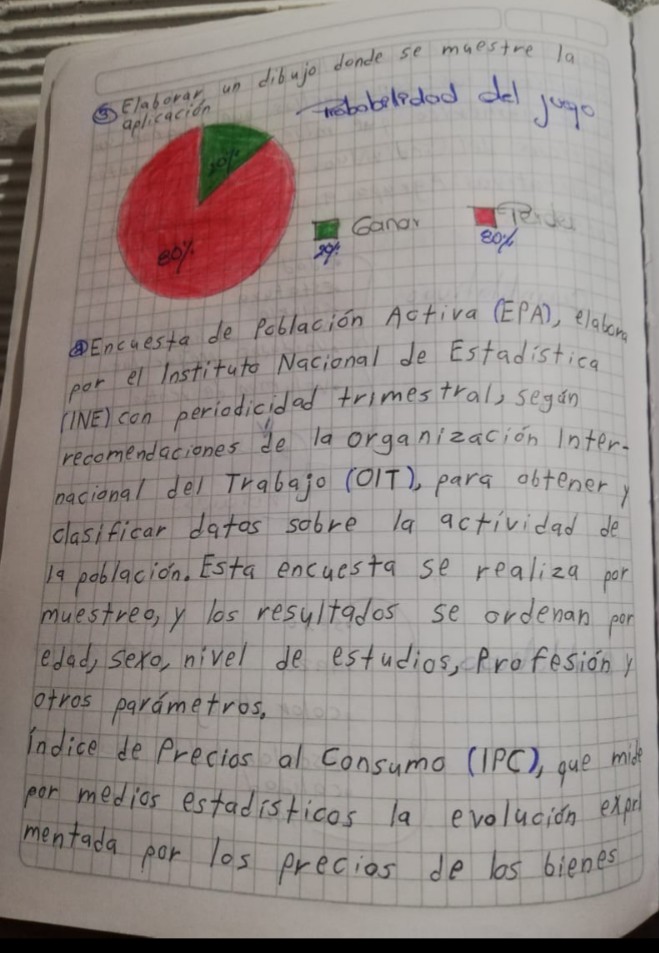 ③ Elaborar un dibujo donde se muestre la
aplicación
Probabelidad del juego
20%
80%
Ganar
Perder
20%
80%
④ Encuesta de Población Activa (EPA), elabora
por el Instituto Nacional de Estadística
(INE) con periodicidad trimestral, según
recomendaciones de la organización Inter-
nacional del Trabajo (OIT), para obtener y
clasificar datos sobre la actividad de
la población. Esta encuesta se realiza por
muestreo, y los resultados se ordenan por
edad, sexo, nivel de estudios, Profesión y
otros parámetros.
índice de Precios al Consumo (IPC), que mide
por medios estadísticos la evolución experi
mentada por los precios de los bienes